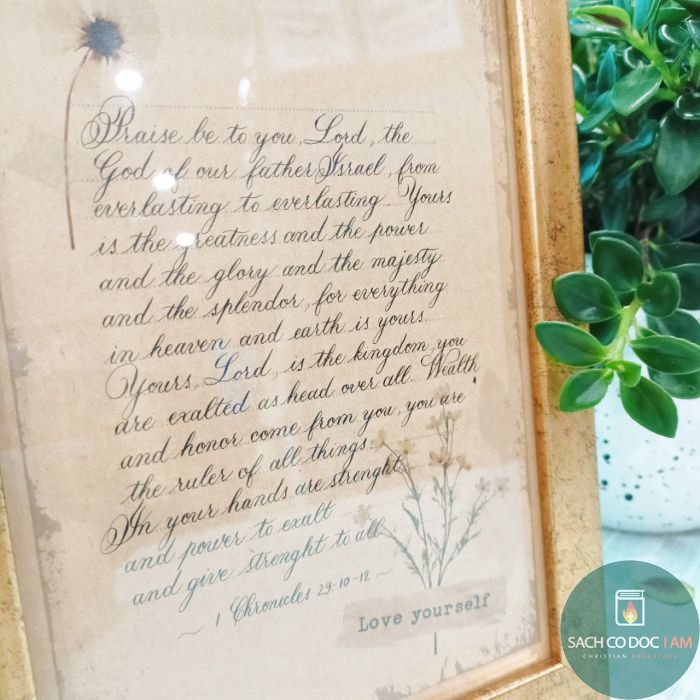 Praise be to you, Lord, the
God of our father Israel, from
everlasting to everlasting. Yours
is the greatness and the power
and the glory and the majesty
and the splendor, for everything
in heaven and earth is yours.
Yours, Lord, is the kingdom, you
are exalted as head over all. Wealth
and honor come from you, you are
the ruler of all things.
In your hands are strenght
and power to exalt
and give strenght to all
~ 1 Chronicles 29:10-12 ~
Love yourself
SACH CO DOC I AM
CHRISTIAN BOOKSTORE